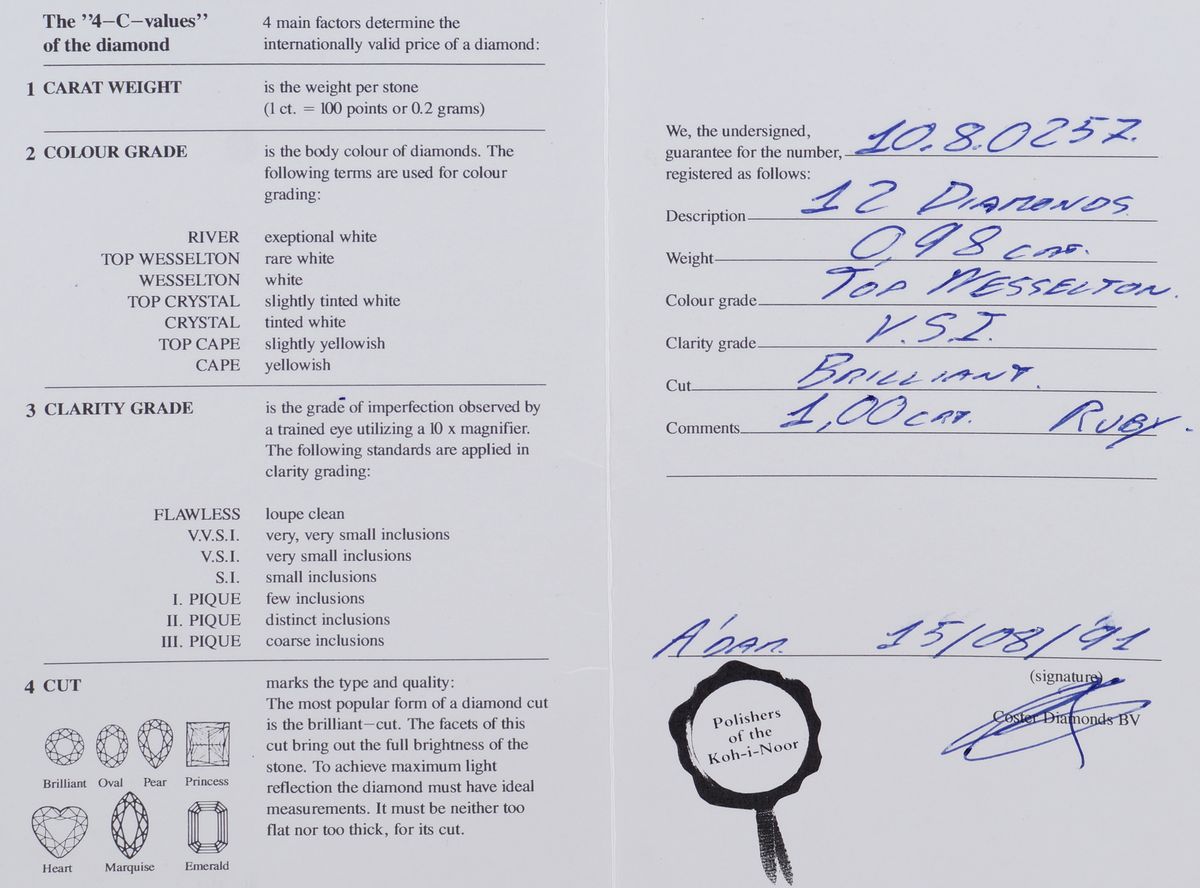 The "4-C-values"
of the diamond
4 main factors determine the
internationally valid price of a diamond:
1 CARAT WEIGHT
is the weight per stone
(1 ct. = 100 points or 0.2 grams)
2 COLOUR GRADE
is the body colour of diamonds. The
following terms are used for colour
grading:
RIVER exeptional white
TOP WESSELTON rare white
WESSELTON white
TOP CRYSTAL slightly tinted white
CRYSTAL tinted white
TOP CAPE slightly yellowish
CAPE yellowish
3 CLARITY GRADE
is the grade of imperfection observed by
a trained eye utilizing a 10 x magnifier.
The following standards are applied in
clarity grading:
FLAWLESS loupe clean
V.V.S.I. very, very small inclusions
V.S.I. very small inclusions
S.I. small inclusions
I. PIQUE few inclusions
II. PIQUE distinct inclusions
III. PIQUE coarse inclusions
4 CUT
marks the type and quality:
The most popular form of a diamond cut
is the brilliant-cut. The facets of this
cut bring out the full brightness of the
stone. To achieve maximum light
reflection the diamond must have ideal
measurements. It must be neither too
flat nor too thick, for its cut.
Brilliant Oval Pear Princess
Heart Marquise Emerald
We, the undersigned,
guarantee for the number, 10.8.0257.
registered as follows:
Description 12 DIAMONDS
Weight 0,98 CRT.
Colour grade TOP WESSELTON.
Clarity grade V.S.I.
Cut BRILLIANT.
Comments 1,00 CRT. RUBY.
A'DAM. 15/08/'91
(signature)
Coster Diamonds BV
Polishers
of the
Koh-i-Noor